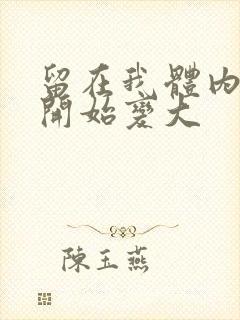 留在我體內
開始變大
陳玉燕